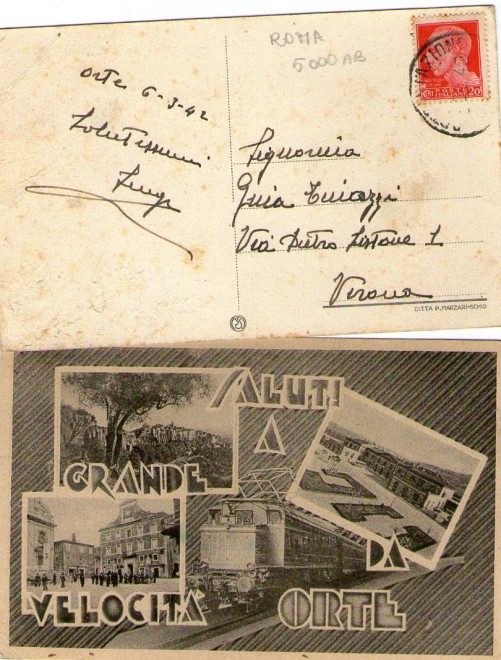 ROMA
5000 AB
Orte 6-3-42
Salutissimi
Luigi
POSTE ITALIANE 20
Signorina
Guia
Via Pietro 1
Verona
DITTA P. MARZARI-SCHIO
SALUTI
A
GRANDE
VELOCITÀ
DA
ORTE